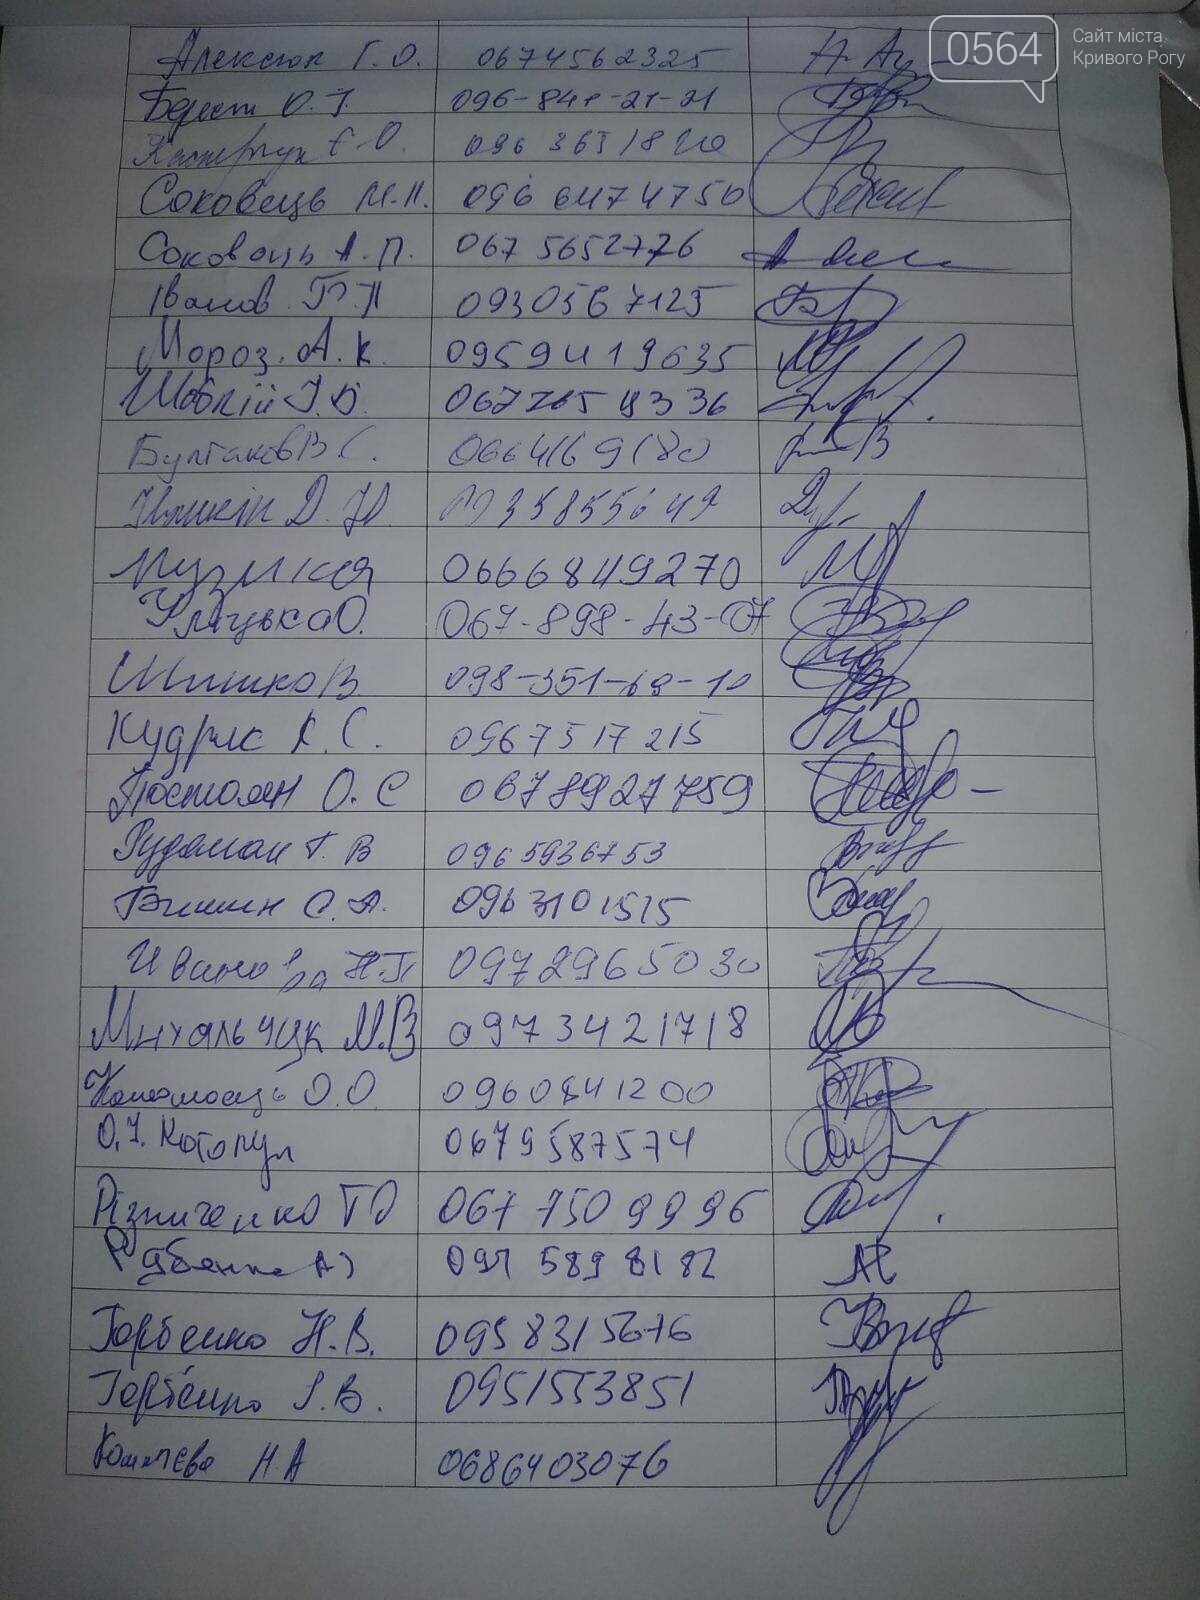 0564 Сайт міста
Кривого Рогу
Алексюк Г.О. 0674562325
Берест О. 096-841-21-21
Є.О. 096
Соковець М.П. 096 6474750
Соковець А.П. 067 5652776
Іванов П 0930567125
Мороз. А.К. 0959419635
Шаблій 067 8336
Булгаков В С. 0664169180
Д. Ю. 358556 49
Музика 0666849270
Уліцька О. 067-898-43-07
Шишко В 098-351-68-10
Кудряс К. С. 0967517215
Постолян О. С 0678927759
Рудаман Г. В 0965936753
С. А. 0963101515
Иванова Н.П 0972965030
Михальчук М.В 0973421718
О.О. 0960841200
О.І. Котопул 0679587574
Різниченко ТО 067 750 9996
Рябенка А 097 589 8182
Горбенко Н.В. 0958315676
Горбенко І.В. 0951553851
Н.А 0686403076